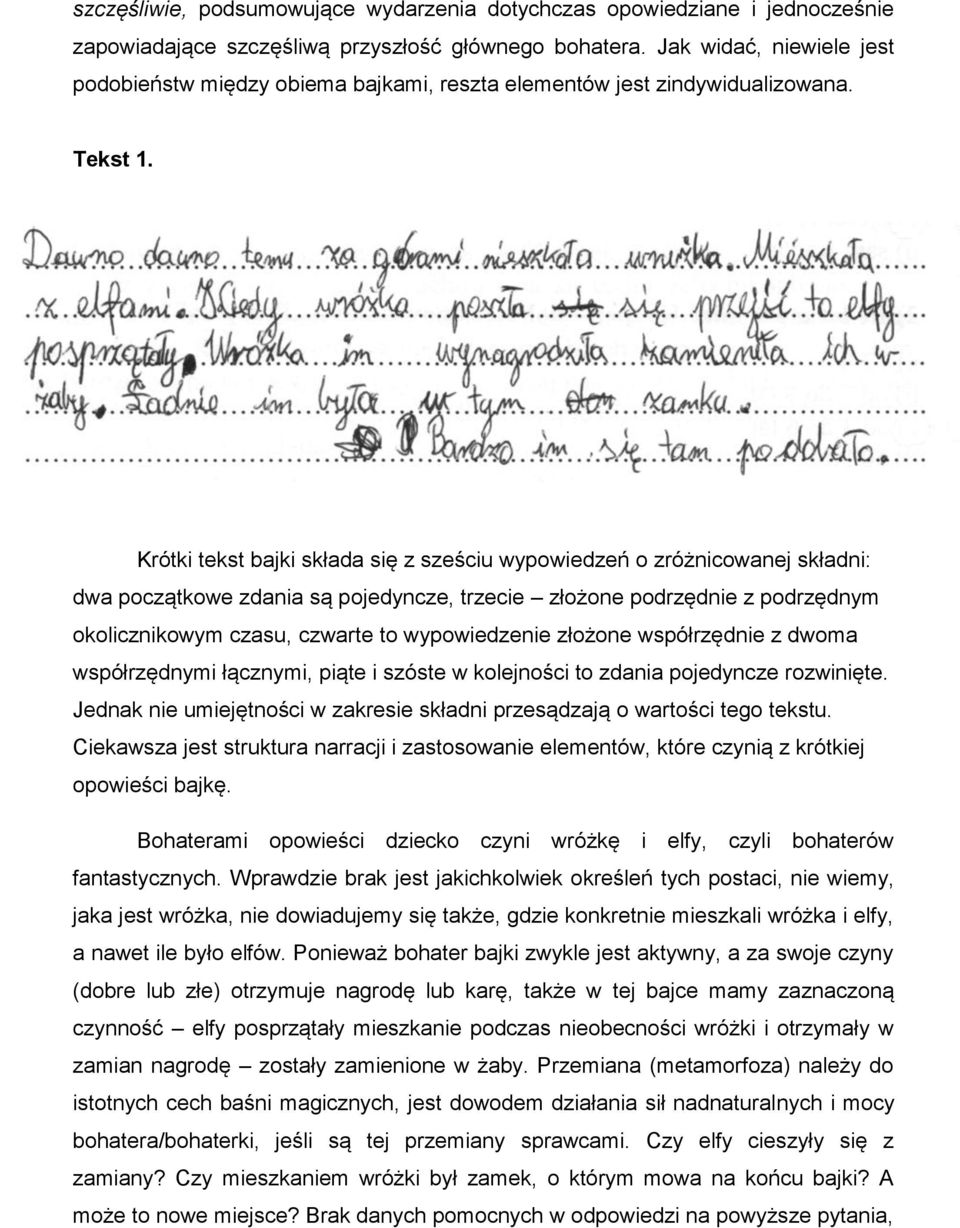 szczęśliwie, podsumowujące wydarzenia dotychczas opowiedziane i jednocześnie
zapowiadające szczęśliwą przyszłość głównego bohatera. Jak widać, niewiele jest
podobieństw między obiema bajkami, reszta elementów jest zindywidualizowana.
Tekst 1.
Dawno dawno temu za górami nieszkała wrużka. Miészkała
z elfami. Kiedy wróżka poszła się się przejść to elfy
posprzątały. Wróżka im wynagrodziła zamieniła ich w
żaby. Ładnie im była w tym zamku.
Bardzo im się tam poddbało.
Krótki tekst bajki składa się z sześciu wypowiedzeń o zróżnicowanej składni:
dwa początkowe zdania są pojedyncze, trzecie – złożone podrzędnie z podrzędnym
okolicznikowym czasu, czwarte to wypowiedzenie złożone współrzędnie z dwoma
współrzędnymi łącznymi, piąte i szóste w kolejności to zdania pojedyncze rozwinięte.
Jednak nie umiejętności w zakresie składni przesądzają o wartości tego tekstu.
Ciekawsza jest struktura narracji i zastosowanie elementów, które czynią z krótkiej
opowieści bajkę.
Bohaterami opowieści dziecko czyni wróżkę i elfy, czyli bohaterów
fantastycznych. Wprawdzie brak jest jakichkolwiek określeń tych postaci, nie wiemy,
jaka jest wróżka, nie dowiadujemy się także, gdzie konkretnie mieszkali wróżka i elfy,
a nawet ile było elfów. Ponieważ bohater bajki zwykle jest aktywny, a za swoje czyny
(dobre lub złe) otrzymuje nagrodę lub karę, także w tej bajce mamy zaznaczoną
czynność – elfy posprzątały mieszkanie podczas nieobecności wróżki i otrzymały w
zamian nagrodę – zostały zamienione w żaby. Przemiana (metamorfoza) należy do
istotnych cech baśni magicznych, jest dowodem działania sił nadnaturalnych i mocy
bohatera/bohaterki, jeśli są tej przemiany sprawcami. Czy elfy cieszyły się z
zamiany? Czy mieszkaniem wróżki był zamek, o którym mowa na końcu bajki? A
może to nowe miejsce? Brak danych pomocnych w odpowiedzi na powyższe pytania,